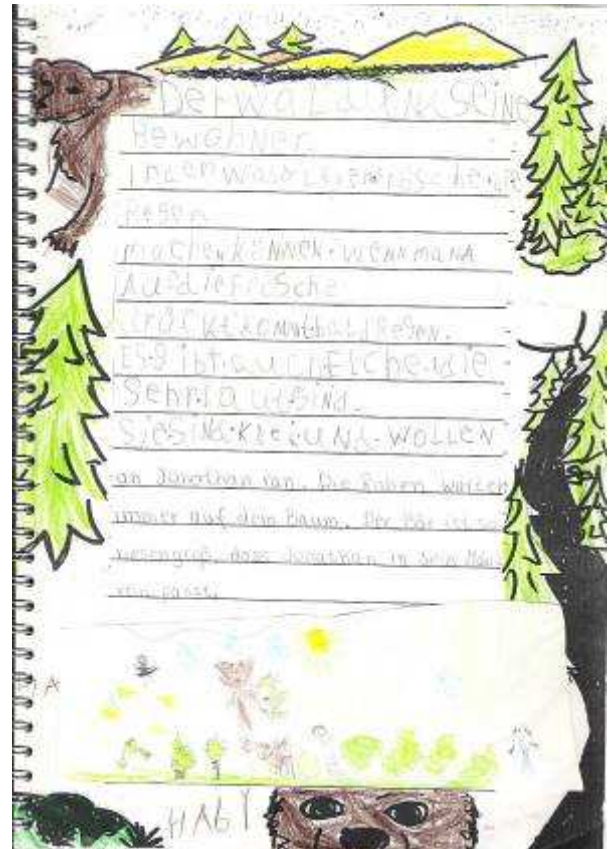 Der Wald und seine
Bewohner.
In den Wald leben Frösche die
Regen
machen können. wenn mana
Auf die Frösche
drückt kommt bald Regen.
Es gibt auch Elche wie
Sehr laut sind.
Sie sind klein und wollen
an Jonathan ran. Die Raben warten
immer auf dem Baum. Der Bär ist so
riesengroß, dass Jonathan in sein Maul
rein passt.
HABY